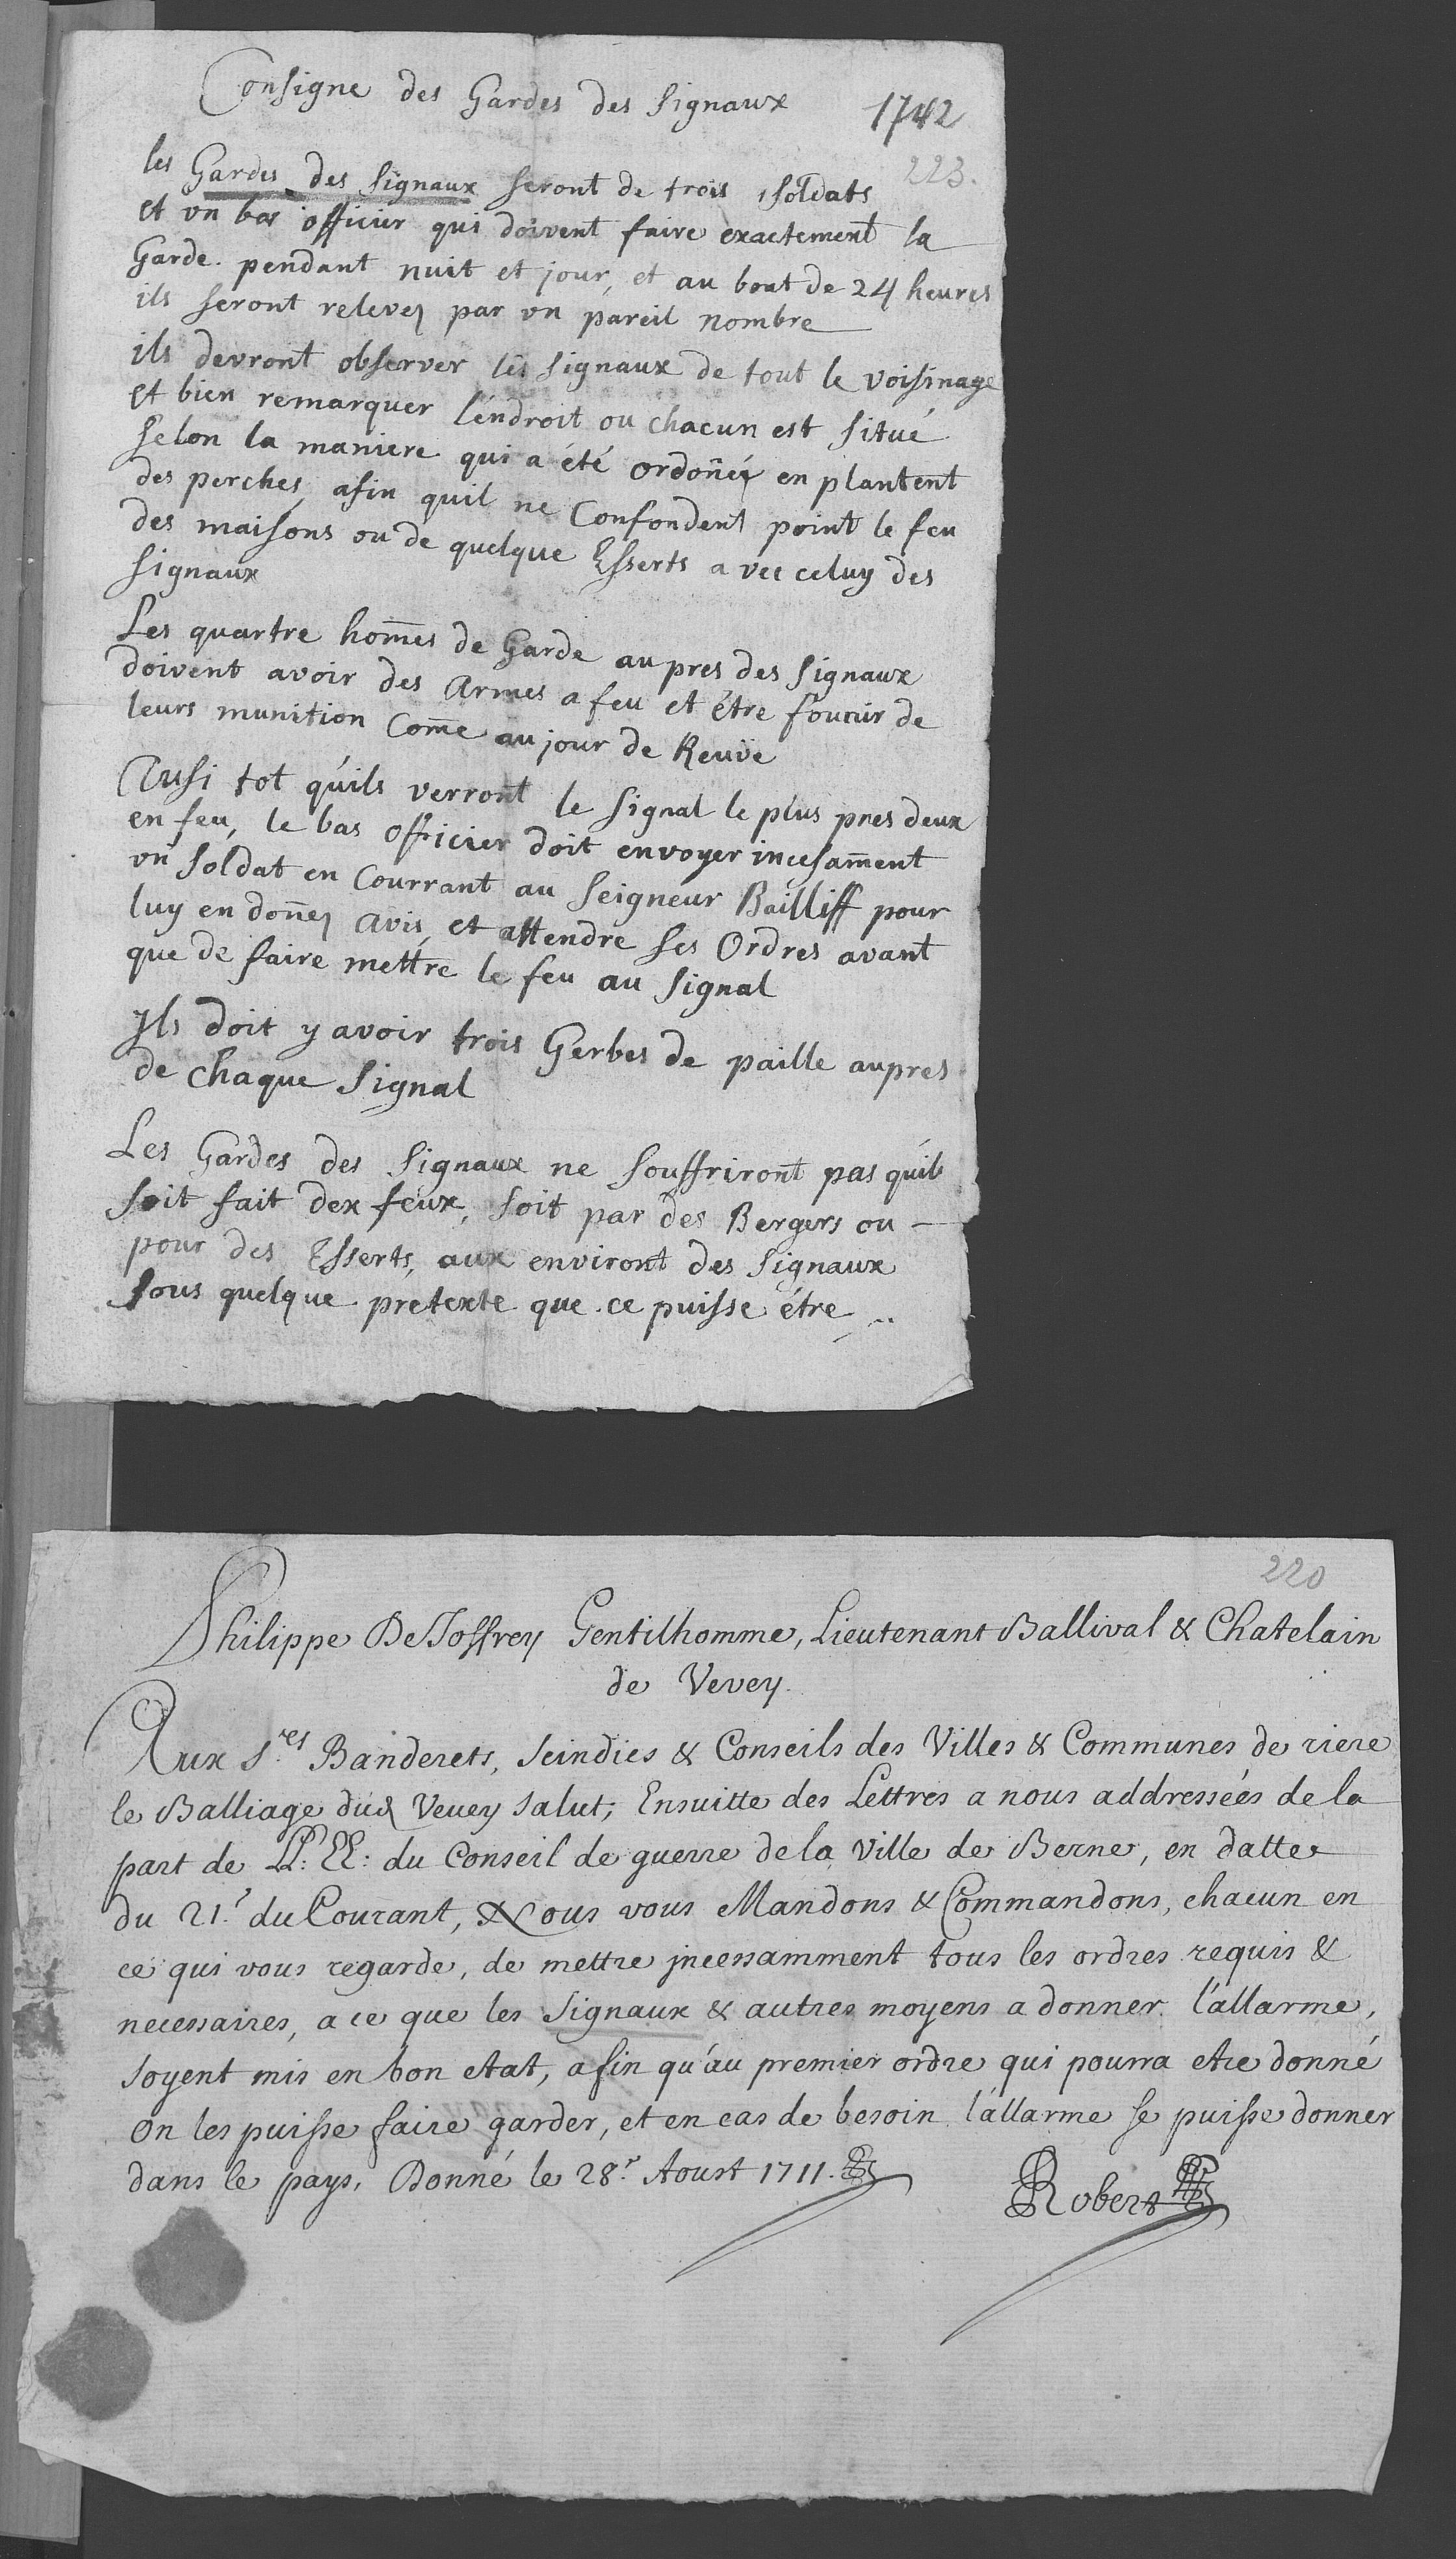 Consigne des Gardes des signaux
1742
223.
les Gardes des signaux seront de trois soldats
et un bas officier qui doivent faire exactement la
Garde. pendant nuit et jour, et au bout de 24 heures
ils seront relevez par un pareil nombre
ils devront observer les signaux de tout le voisinage
et bien remarquer l'éndroit ou chacun est situé
selon la maniere qui a été ordoñée en plantent
des perches, afin quil ne Confondent point le feu
des maisons ou de quelque Esserts avec celuy des
signaux
Les quartre hom̄es de Garde aupres des signaux
doivent avoir des Armes a feu et étre fournir de
leurs munition Com̄e au jour de Reuüe
Ausi tot qúils verront le signal le plus pres deux
en feu, le bas officier doit envoyer incesam̄ent
un soldat en Courrant au seigneur Bailliff pour
luy en doñez avis, et attendre ses Ordres avant
que de faire mettre le feu au signal
Ils doit y avoir trois Gerbes de paille aupres
de chaque signal
Les Gardes des signaux ne souffriront pas qúils
soit fait dex feux, soit par des Bergers ou
pour des Esserts, aux environt des signaux
sous quelque pretexte que ce puisse étre
220
Philippe DeJoffrey Gentilhomme, Lieutenant Ballival & Chatelain
de Vevey.
Aux S.res Banderets, Scindics & Conseils des Villes & Communes de riere
le Balliage dud Vevey salut; Ensuitte des Lettres a nous addresseés de la
part de LL: EE: du Conseil de guerre de la Ville de Berne, en datte
du 21.e du Courant, Nous vous Mandons & Commandons, chacun en
ce qui vous regarde, de mettre jncessamment tous les ordres requis &
necessaires, a ce que les signaux & autres moyens a donner l'allarme,
soyent mis en bon etat, afin qu'au premier ordre qui pourra etre donné
on les puisse faire garder, et en cas de besoin l'allarme se puisse donner
dans le pays. Donné le 28.e Aoust 1711.
Robert